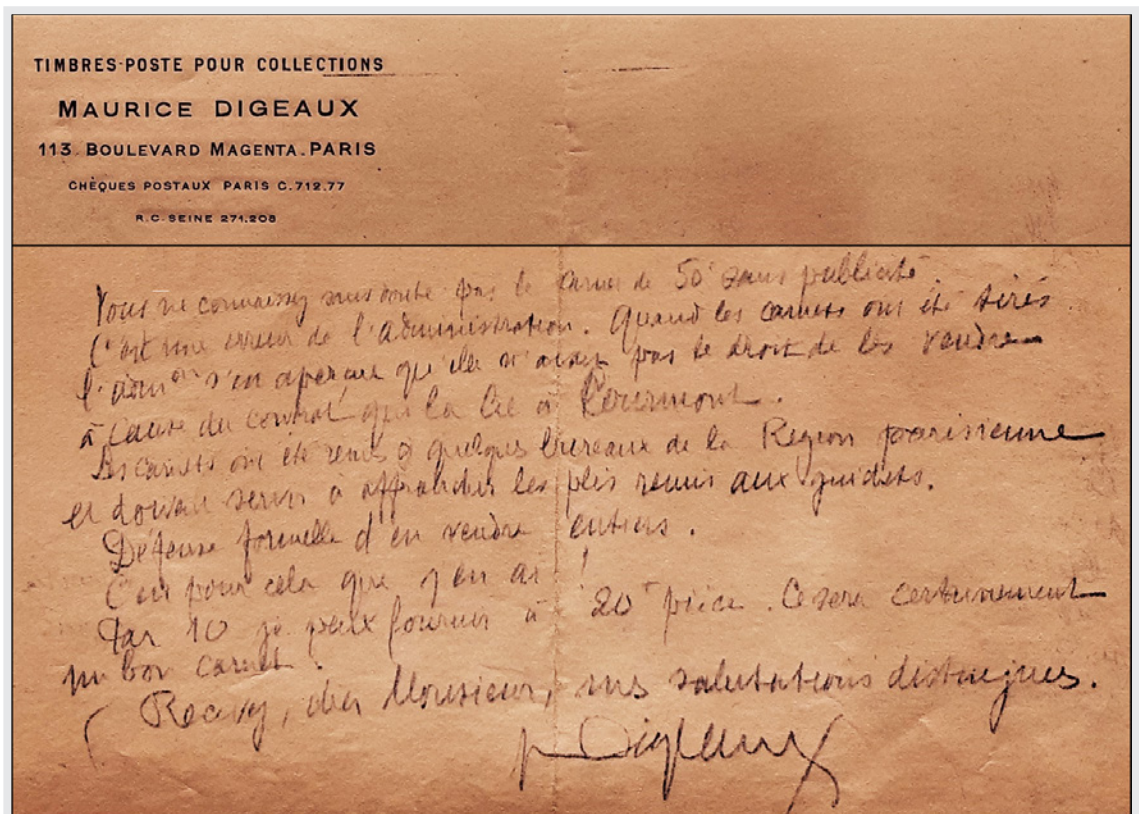 TIMBRES-POSTE POUR COLLECTIONS
MAURICE DIGEAUX
113. BOULEVARD MAGENTA. PARIS
CHÈQUES POSTAUX PARIS C.712.77
R.C. SEINE 271.208
Vous ne connaissez sans doute pas le carnet de 50ᶜ sans publicité.
C'est une erreur de l'administration. Quand les carnets ont été tirés
l'admᵒⁿ s'en aperçut qu'elle n'avait pas le droit de les vendre
à cause du contrat qui la lie à Courmont.
Les carnets ont été remis à quelques bureaux de la Région parisienne
et doivent servir à affranchir les plis remis aux guichets.
Défense formelle d'en vendre entiers.
C'est pour cela que j'en ai !
Par 10 je peux fournir à 20ᶠ pièce. Ce sera certainement
un bon carnet.
Recevez, cher Monsieur, mes salutations distinguées.
Digeaux